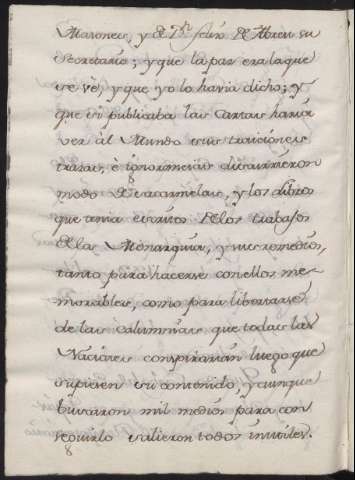 Maronea, y D.n Isidro de Abreu su
Secretario; y que la paz era la que
se vè, y que yo lo havia dicho; y
que si publicaba las Cartas haria
ver àl Mundo sus traiciones
è ignorancias discurrieron
modo de cacarmelas, y los libros
que tenia escritos de los trabajos
de la Monarquia, y sus remedios,
tanto para hacerse con ellos me-
morables, como para libertarse
de las calumnias que todas las
Naciones conspirarian luego que
supiesen su contenido, y aunque
buscaron mil medios para con
seguirlo salieron todos inutiles.
8